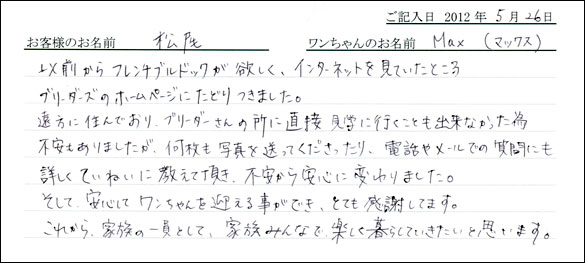 ご記入日 2012 年 5 月 26 日
お客様のお名前 松尾 ワンちゃんのお名前 Max (マックス)
以前からフレンチブルドックが欲しく、インターネットを見ていたところ
ブリーダーズのホームページにたどりつきました。
遠方に住んでおり、ブリーダーさんの所に直接見学に行くことも出来なかった為
不安もありましたが、何枚も写真を送ってくださったり、電話やメールでの質問にも
詳しくていねいに教えて頂き、不安から安心に変わりました。
そして、安心してワンちゃんを迎える事ができ、とても感謝してます。
これから、家族の一員として、家族みんなで、楽しく暮らしていきたいと思います。